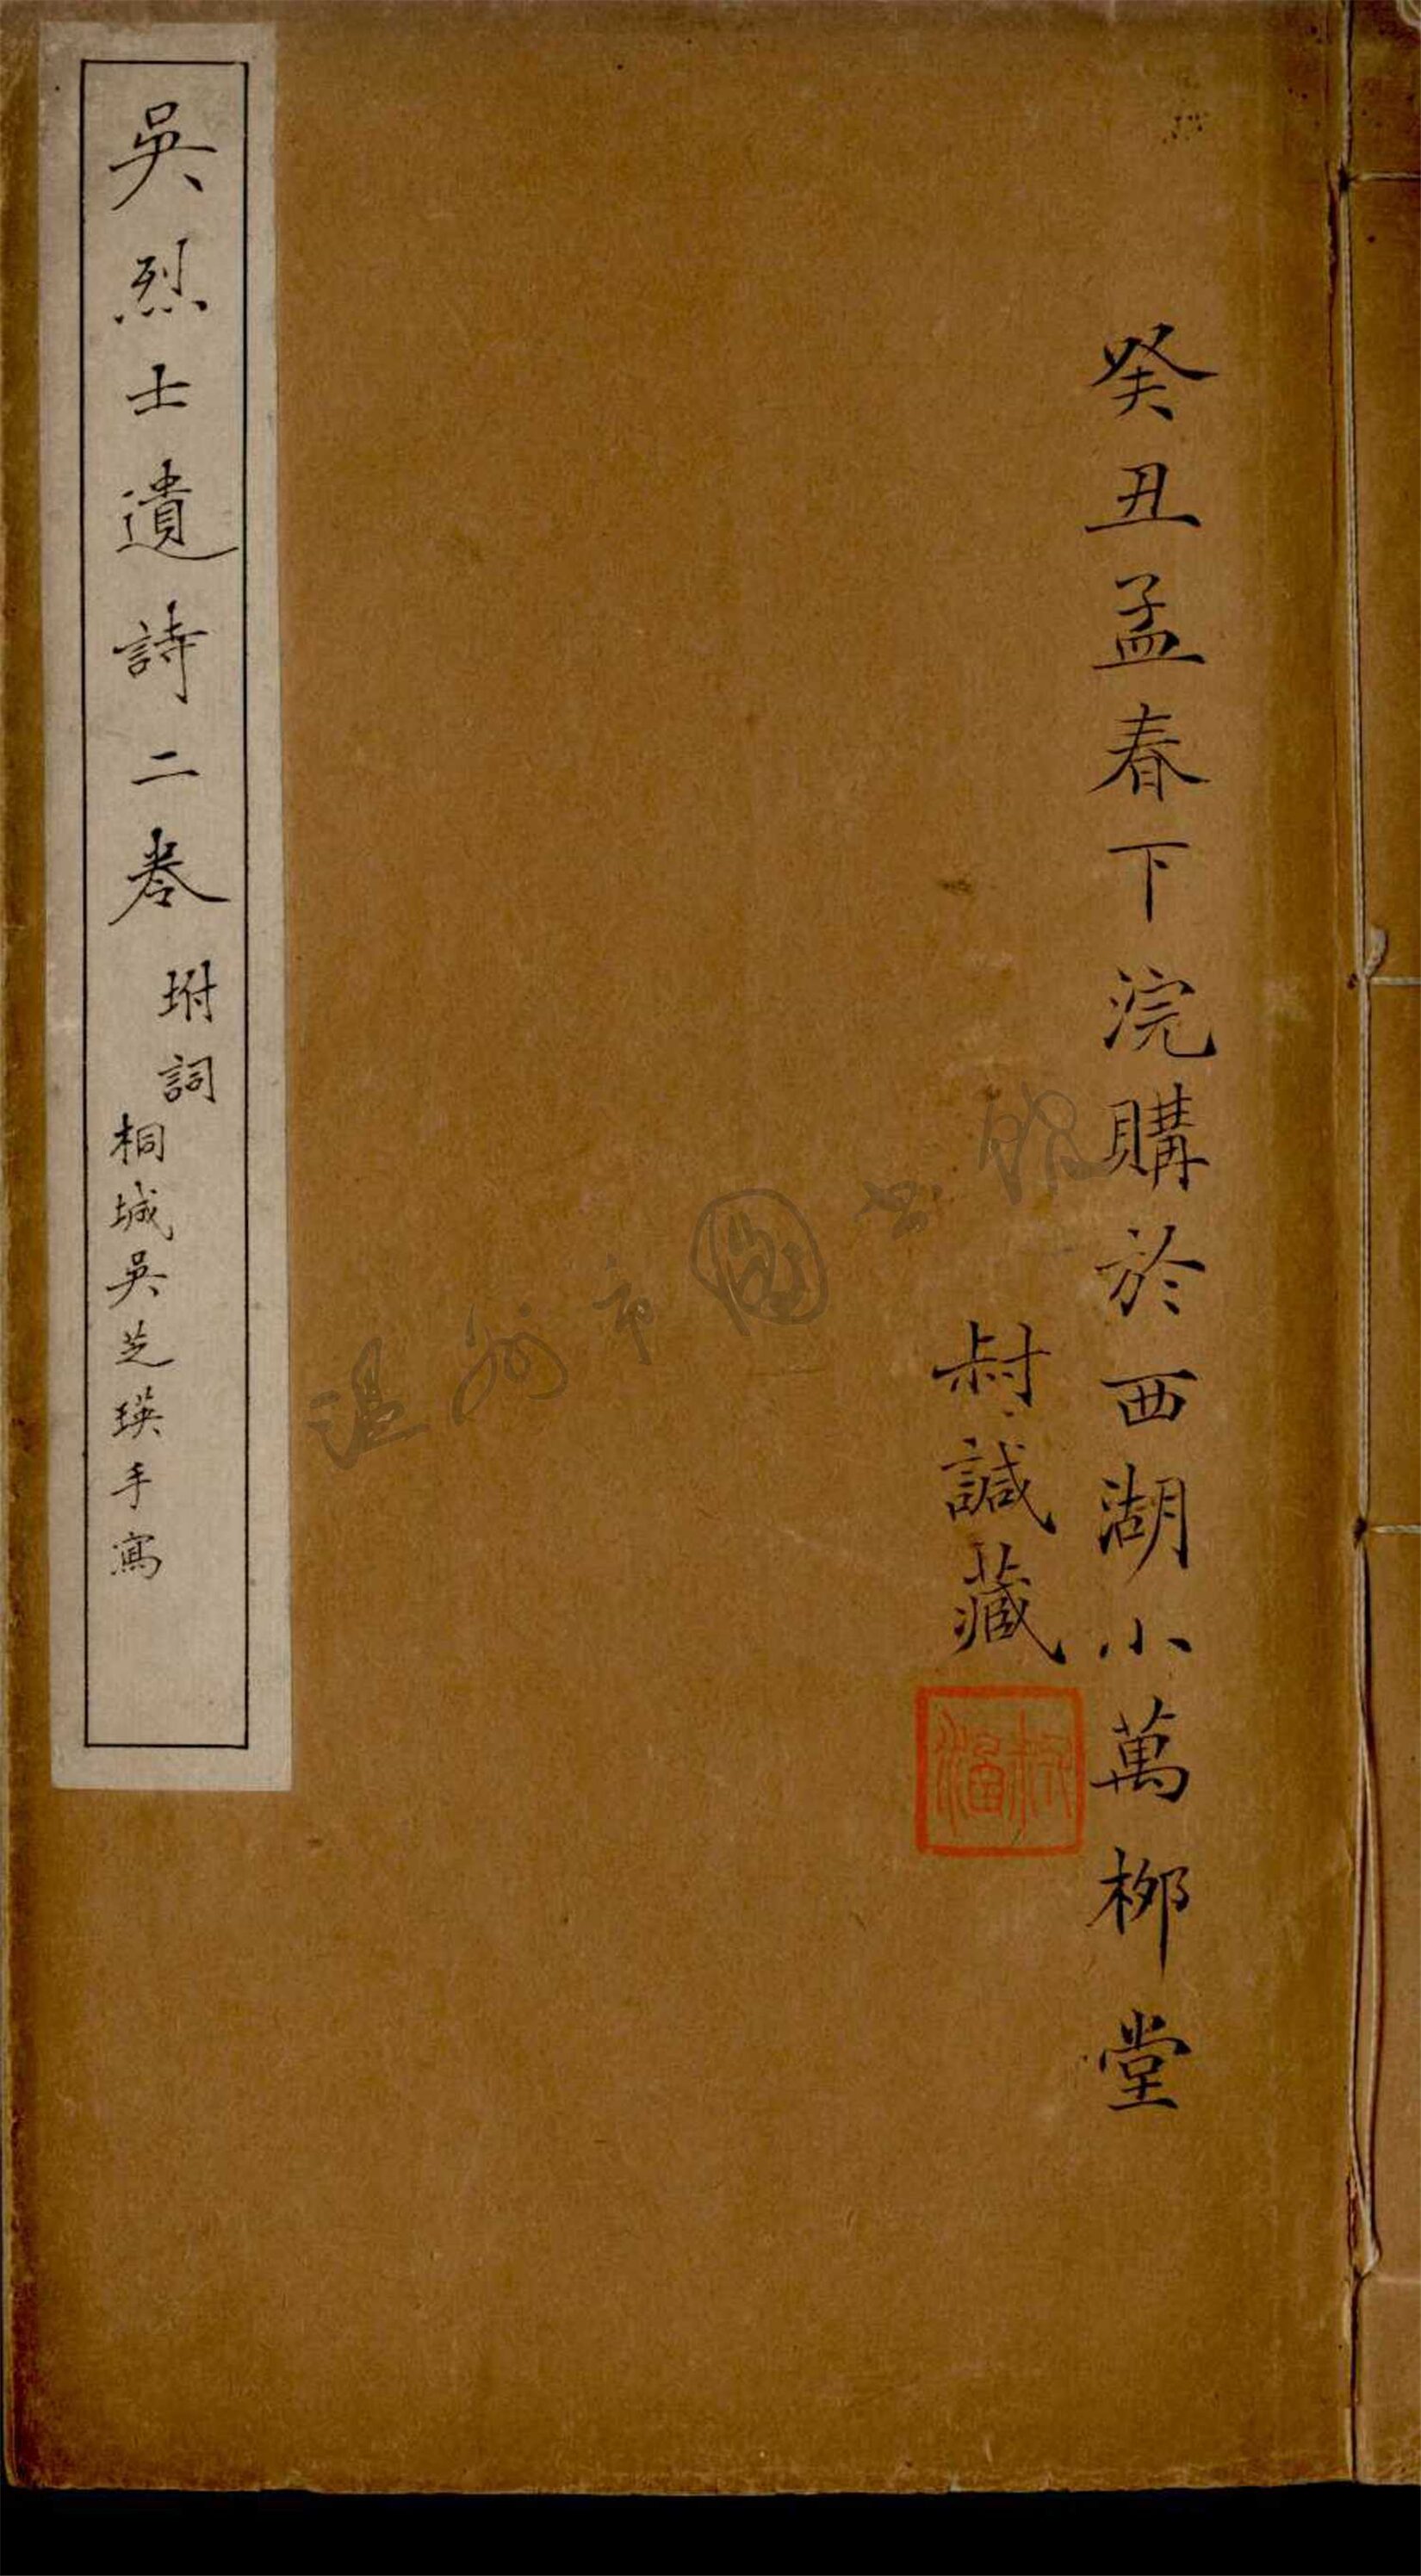 癸丑孟春下浣購於西湖小萬柳堂
尌諴藏
吳烈士遺詩二卷
坿詞
桐城吳芝瑛手寫
温州市圖书馆